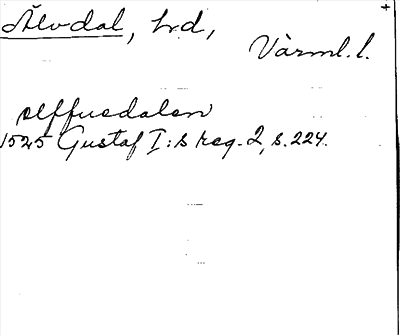 Älvdal, hrd,
Värml. l.
elffuedalen
1525 Gustaf I:s reg. 2, s. 224.